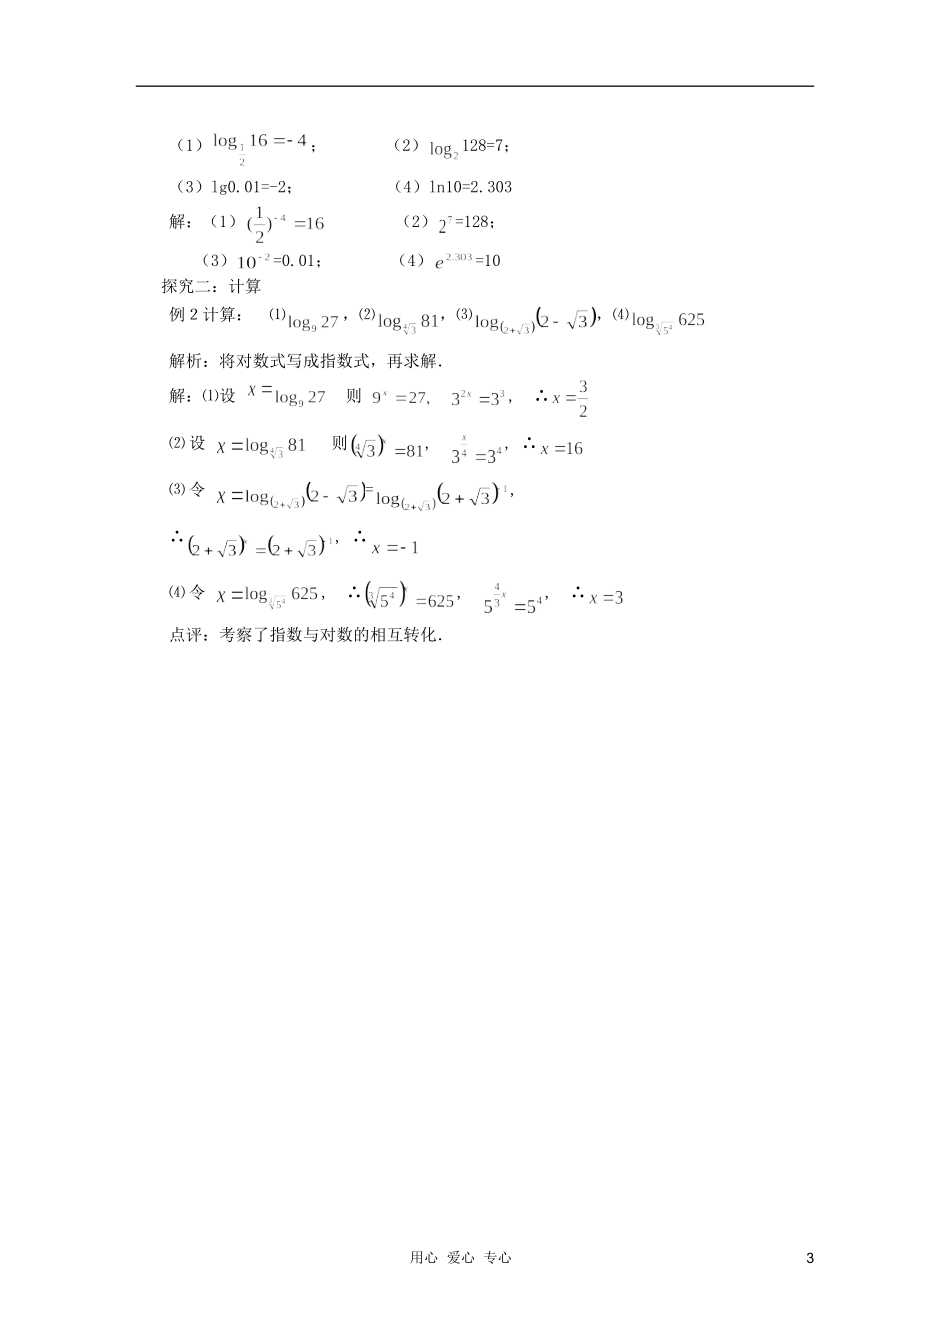 （1）log_{1/2} 16=-4；（2）log_2 128=7；
（3）lg0.01=-2；（4）ln10=2.303
解：（1）(1/2)^{-4}=16（2）2^7=128；
（3）10^{-2}=0.01；（4）e^{2.303}=10
探究二：计算
例 2 计算：⑴log_9 27，⑵log_{∜3} 81，⑶log_{(2+√3)}(2-√3)，⑷log_{∛5^4} 625
解析：将对数式写成指数式，再求解．
解：⑴设 x=log_9 27 则 9^x=27, 3^{2x}=3^3, ∴x=3/2
⑵ 设 x=log_{∜3} 81 则(∜3)^x=81, 3^{x/4}=3^4, ∴x=16
⑶ 令 x=log_{(2+√3)}(2-√3)=log_{(2+√3)}(2+√3)^{-1},
∴(2+√3)^x=(2+√3)^{-1}, ∴x=-1
⑷ 令 x=log_{∛5^4} 625, ∴(∛5^4)^x=625, 5^{4/3 x}=5^4, ∴x=3
点评：考察了指数与对数的相互转化．
用心 爱心 专心 3